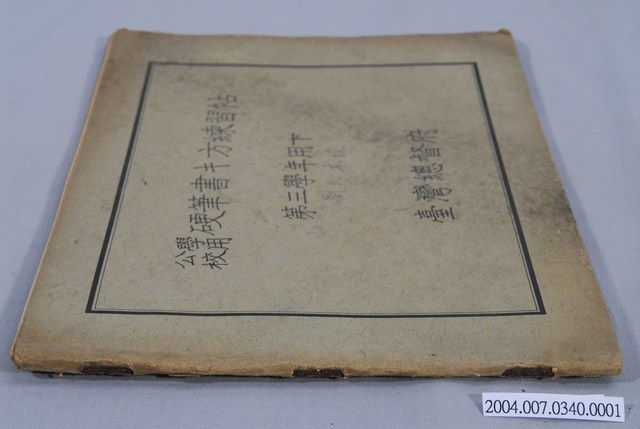 公學校用硬筆書キ方練習帖
第三學年用下
臺灣總督府
2004.007.0340.0001